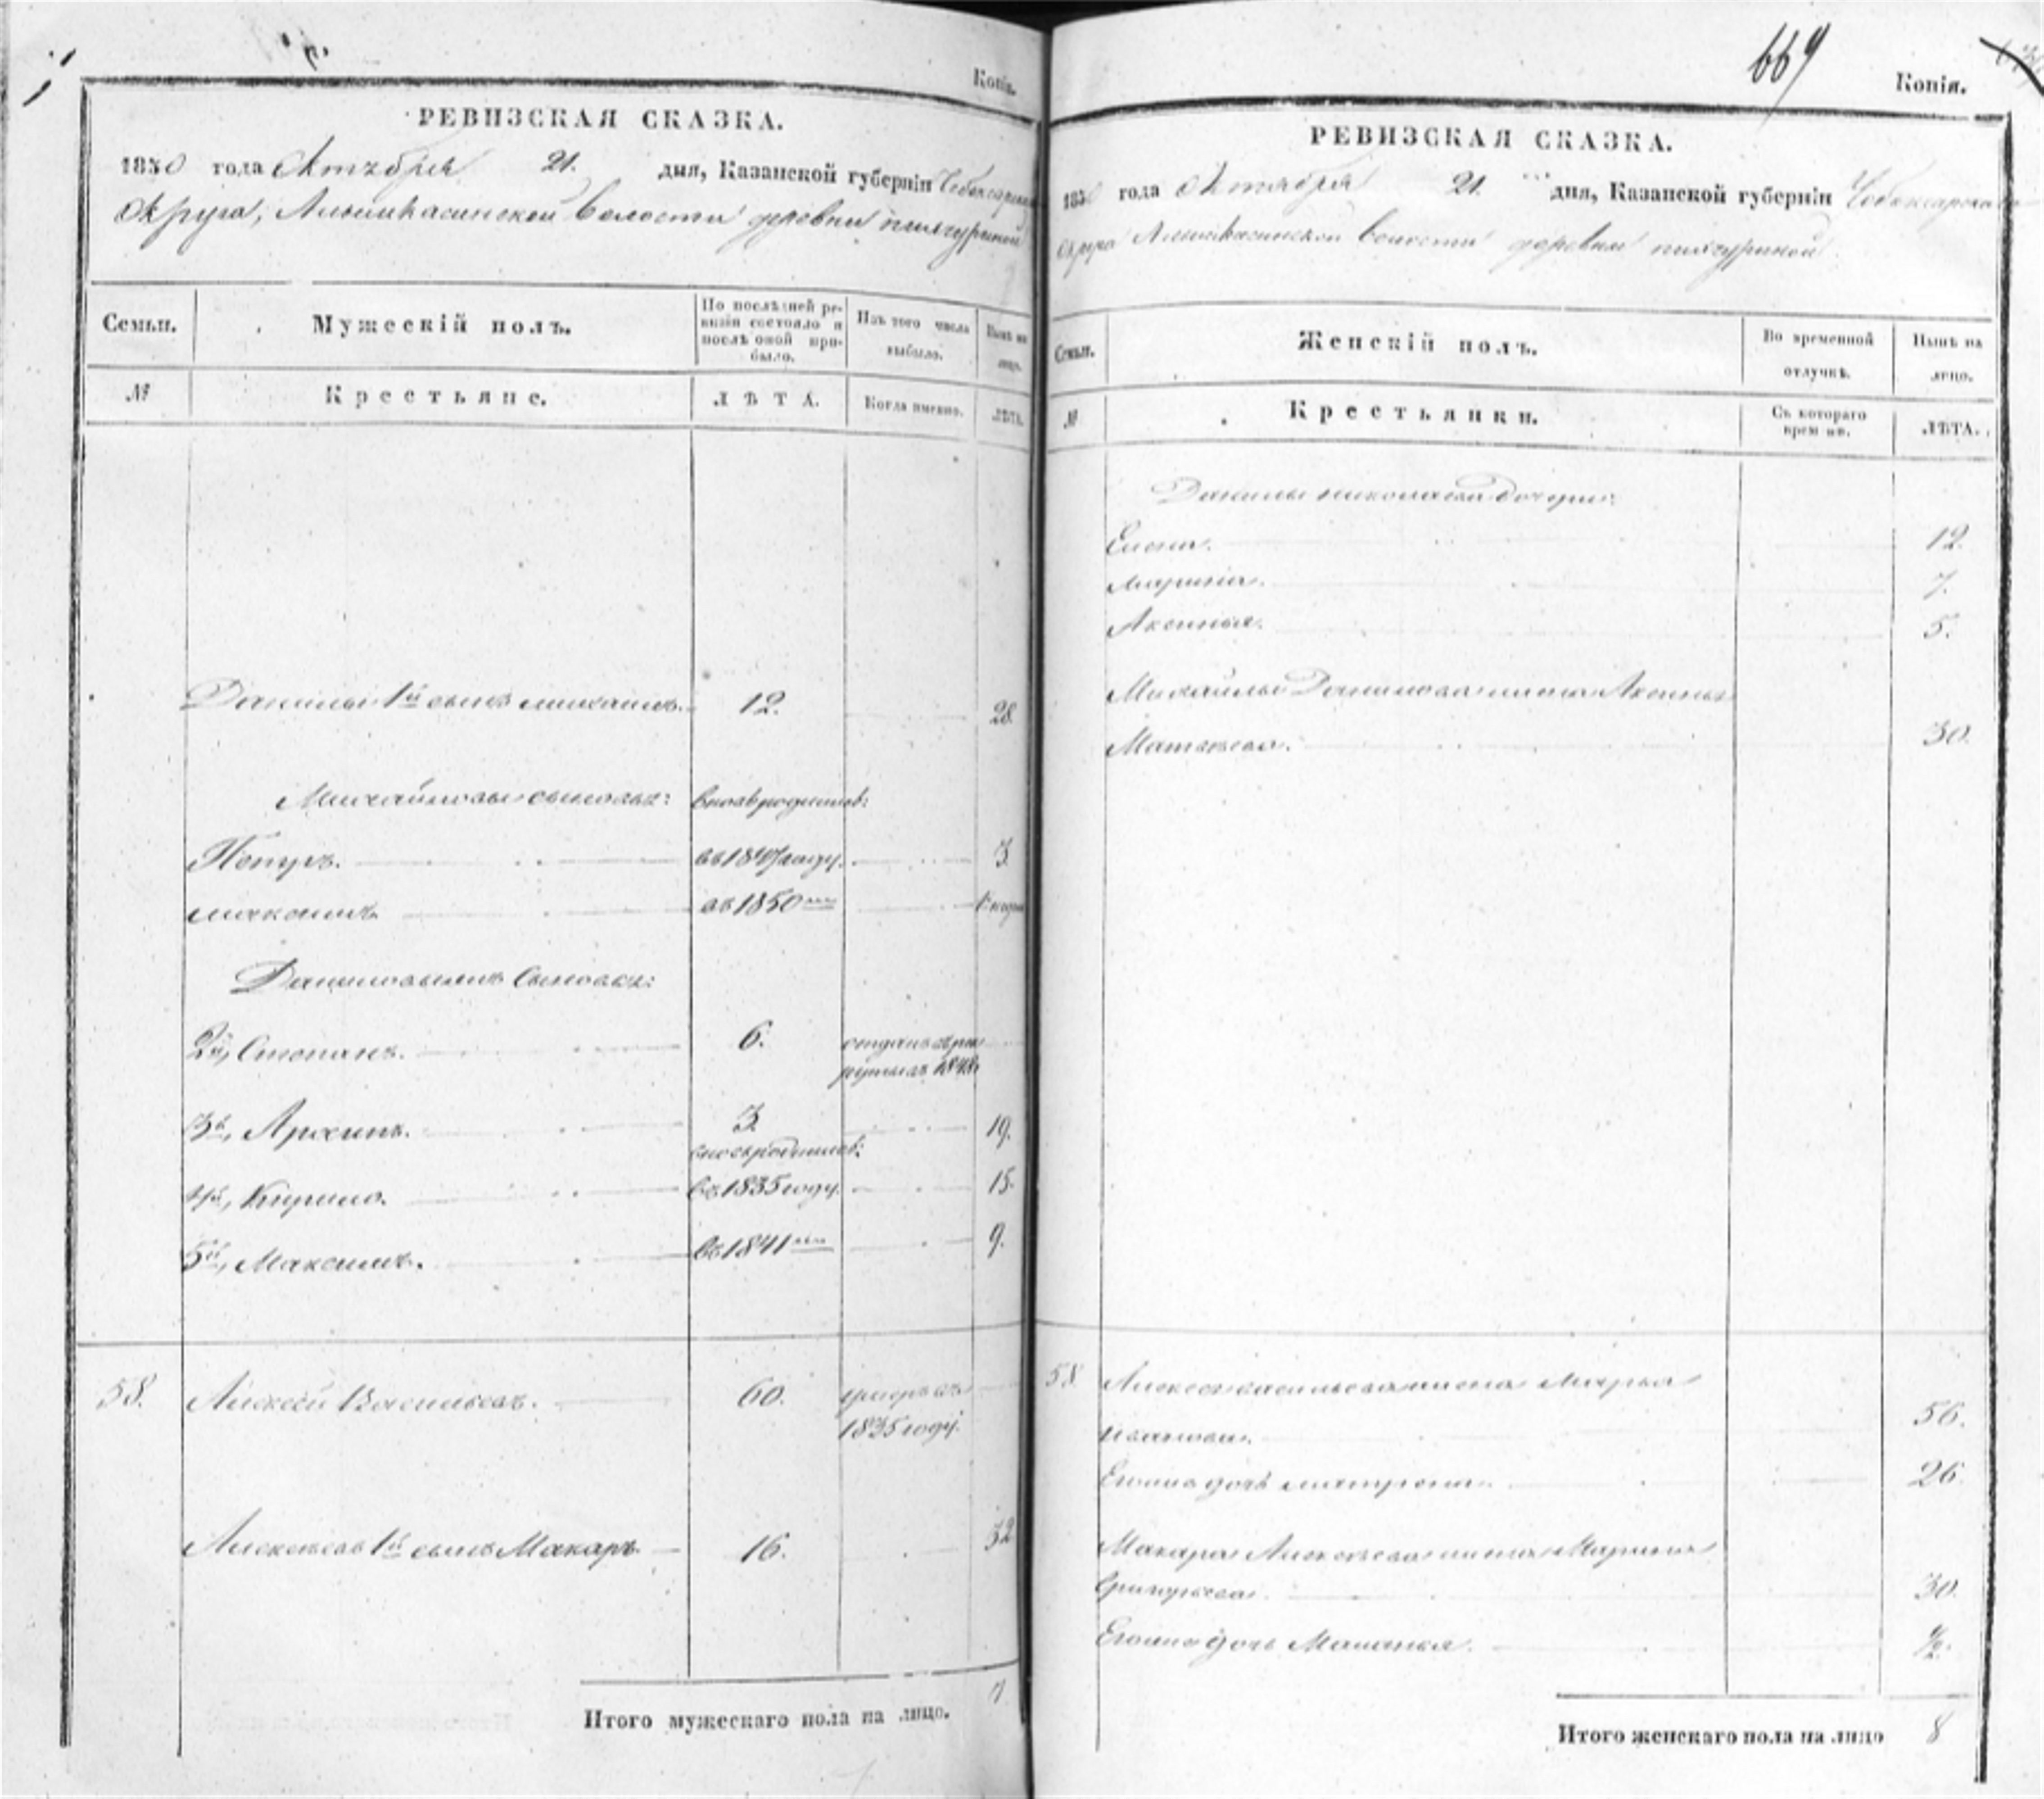 Копія.
РЕВИЗСКАЯ СКАЗКА.
1850 года Октября 21. дня, Казанской губерніи Чебоксарскаго
Округа, Алымкасинской волости деревни
Семьи. Мужескій полъ. По послѣдней ревизіи состояло и послѣ оной прибыло. Изъ того числа выбыло. Нынѣ на лицо.
№ Крестьяне. ЛѢТА. Когда именно. ЛѢТА.
Данилы 1й сынъ Михаилъ. 12. 28.
Михайловы сыновья: вновь рожденные:
Петръ. въ 1847 году. 3.
Максимъ. въ 1850
Даниловы сыновья:
2й, Степанъ. 6. отданъ въ рекруты въ 1848
3й, 3. 19.
вновь рожденные:
4й, Кирило. въ 1835 году. 15.
5й, Максимъ. въ 1841 9.
58. Алексей Васильевъ. 60. умеръ въ
1835 году.
Алексеевъ 1й сынъ Макаръ 16. 32
7
Итого мужескаго пола на лицо.
669
Копія.
РЕВИЗСКАЯ СКАЗКА.
1850 года Октября 21. дня, Казанской губерніи Чебоксарскаго
Округа Алымкасинской волости деревни
Семьи. Женскій полъ. Во временной отлучкѣ. Нынѣ на лицо.
№ Крестьянки. Съ котораго времени. ЛѢТА.
Данилы Николаева дочери:
Елена. 12.
Марина. 7.
Аксинья. 5.
Михайлы Данилова жена Аксинья
Матвеева. 30.
58. Алексея Васильева жена Марья
Иванова. 56.
Его дочь Матрена. 26.
Макара Алексеева жена Марина
Григорьева. 30.
Его дочь Маланья. ½.
Итого женскаго пола на лицо 8